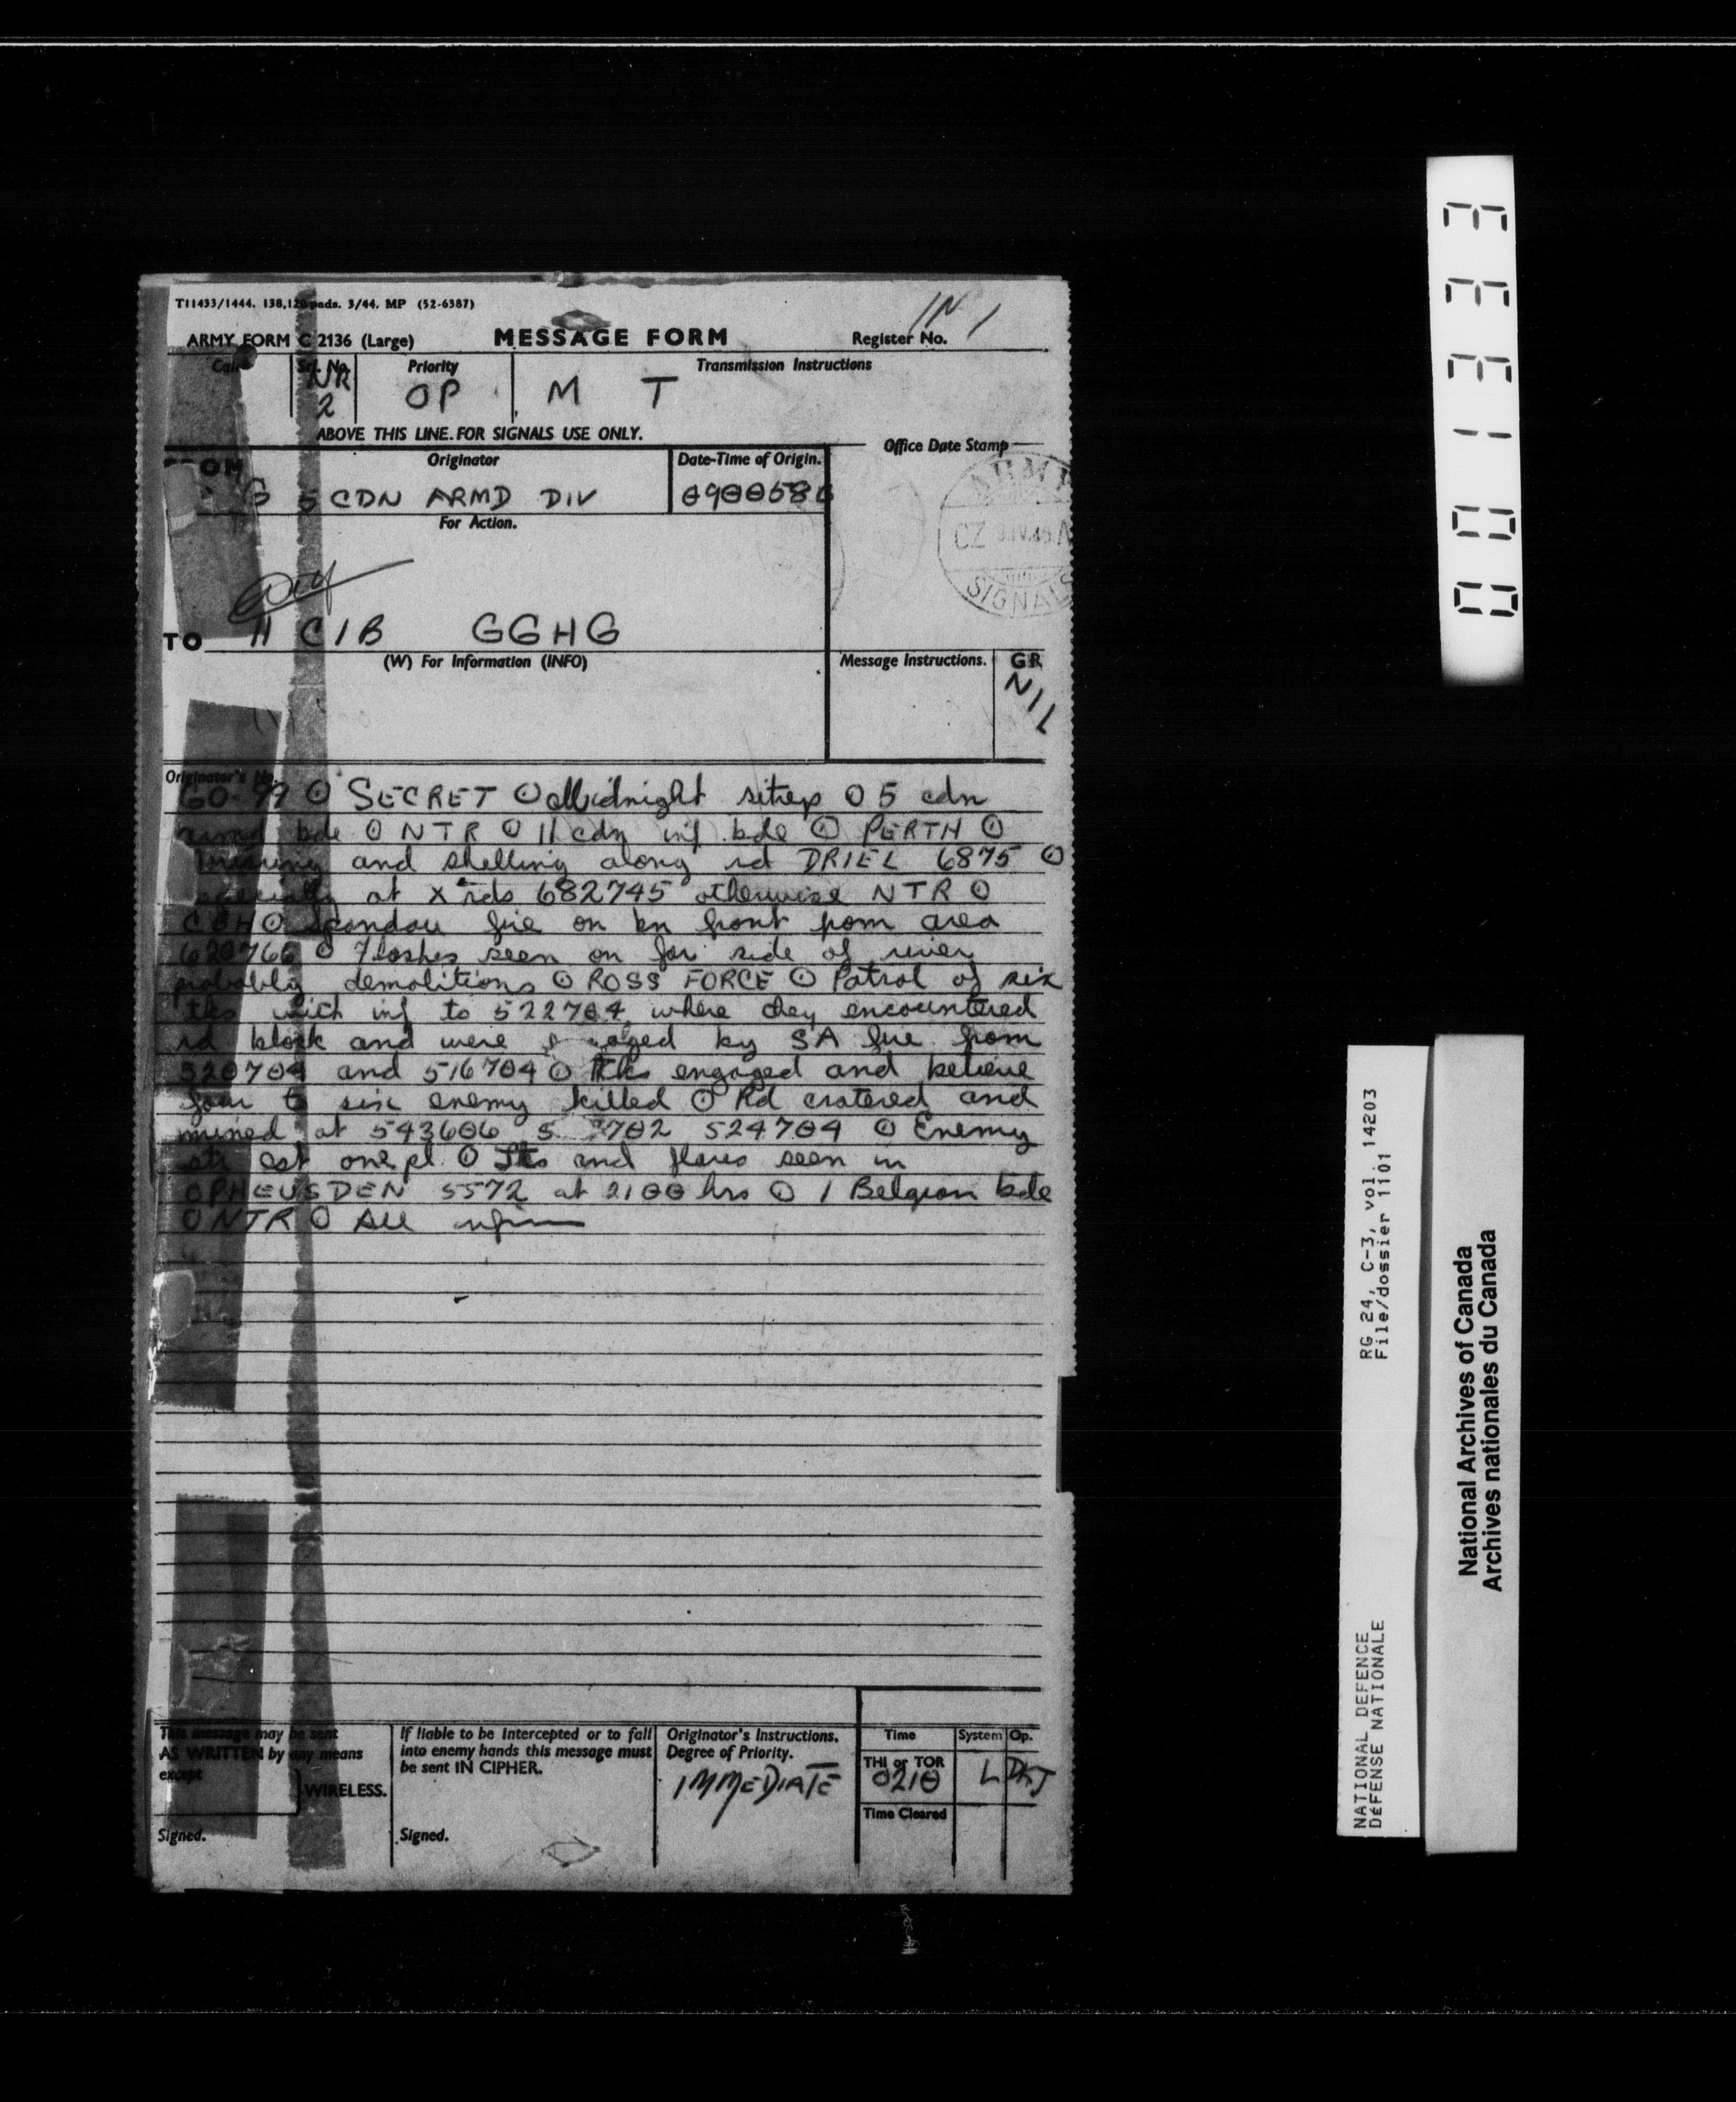 T11433/1444. 138,120 pads. 3/44. MP (52-6387)
IN 1
ARMY FORM C 2136 (Large) MESSAGE FORM Register No.
Call Srl. No. Priority Transmission Instructions
NR 2 OP M T
ABOVE THIS LINE FOR SIGNALS USE ONLY.
Originator Date-Time of Origin. Office Date Stamp
5 CDN ARMD DIV
For Action.
ARMY
CZ
SIGNALS
TO 11 CIB GGHG
(W) For Information (INFO) Message Instructions. GR
NIL
Originator's No.
GO 99 ⊙ SECRET ⊙ Midnight sitrep ⊙ 5 cdn
armd bde ⊙ NTR ⊙ 11 cdn inf bde ⊙ PERTH ⊙
and shelling along rd DRIEL 6875 ⊙
especially at X rds 682745 otherwise NTR ⊙
CBH ⊙ Spandau fire on bn front from area
⊙ Flashes seen on far side of river
probably demolitions ⊙ ROSS FORCE ⊙ Patrol of six
tks with inf to 522704 where they encountered
rd block and were engaged by SA fire from
520704 and 516704 ⊙ Tks engaged and believe
four to six enemy killed ⊙ Rd cratered and
mined at 543606 5 702 524704 ⊙ Enemy
str est one pl ⊙ Lts and flares seen in
OPHEUSDEN 5572 at 2100 hrs ⊙ 1 Belgian bde
⊙ NTR ⊙ All
This message may be sent
AS WRITTEN by any means
except
WIRELESS.
Signed.
If liable to be intercepted or to fall
into enemy hands this message must
be sent IN CIPHER.
Signed.
Originator's Instructions.
Degree of Priority.
IMMEDIATE
Time System Op.
THI or TOR
0210 L DKJ
Time Cleared
001333
RG 24, C-3, vol. 14203
File/dossier 1101
NATIONAL DEFENCE
DÉFENSE NATIONALE
National Archives of Canada
Archives nationales du Canada